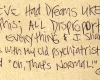 I'VE HAD DREAMS LIKE
THIS; ALL DROPS FOR
EVERYTHING & I SHA
WITH MY OLD PSYCHIATRIST
AND "OH, THAT'S NORMAL."